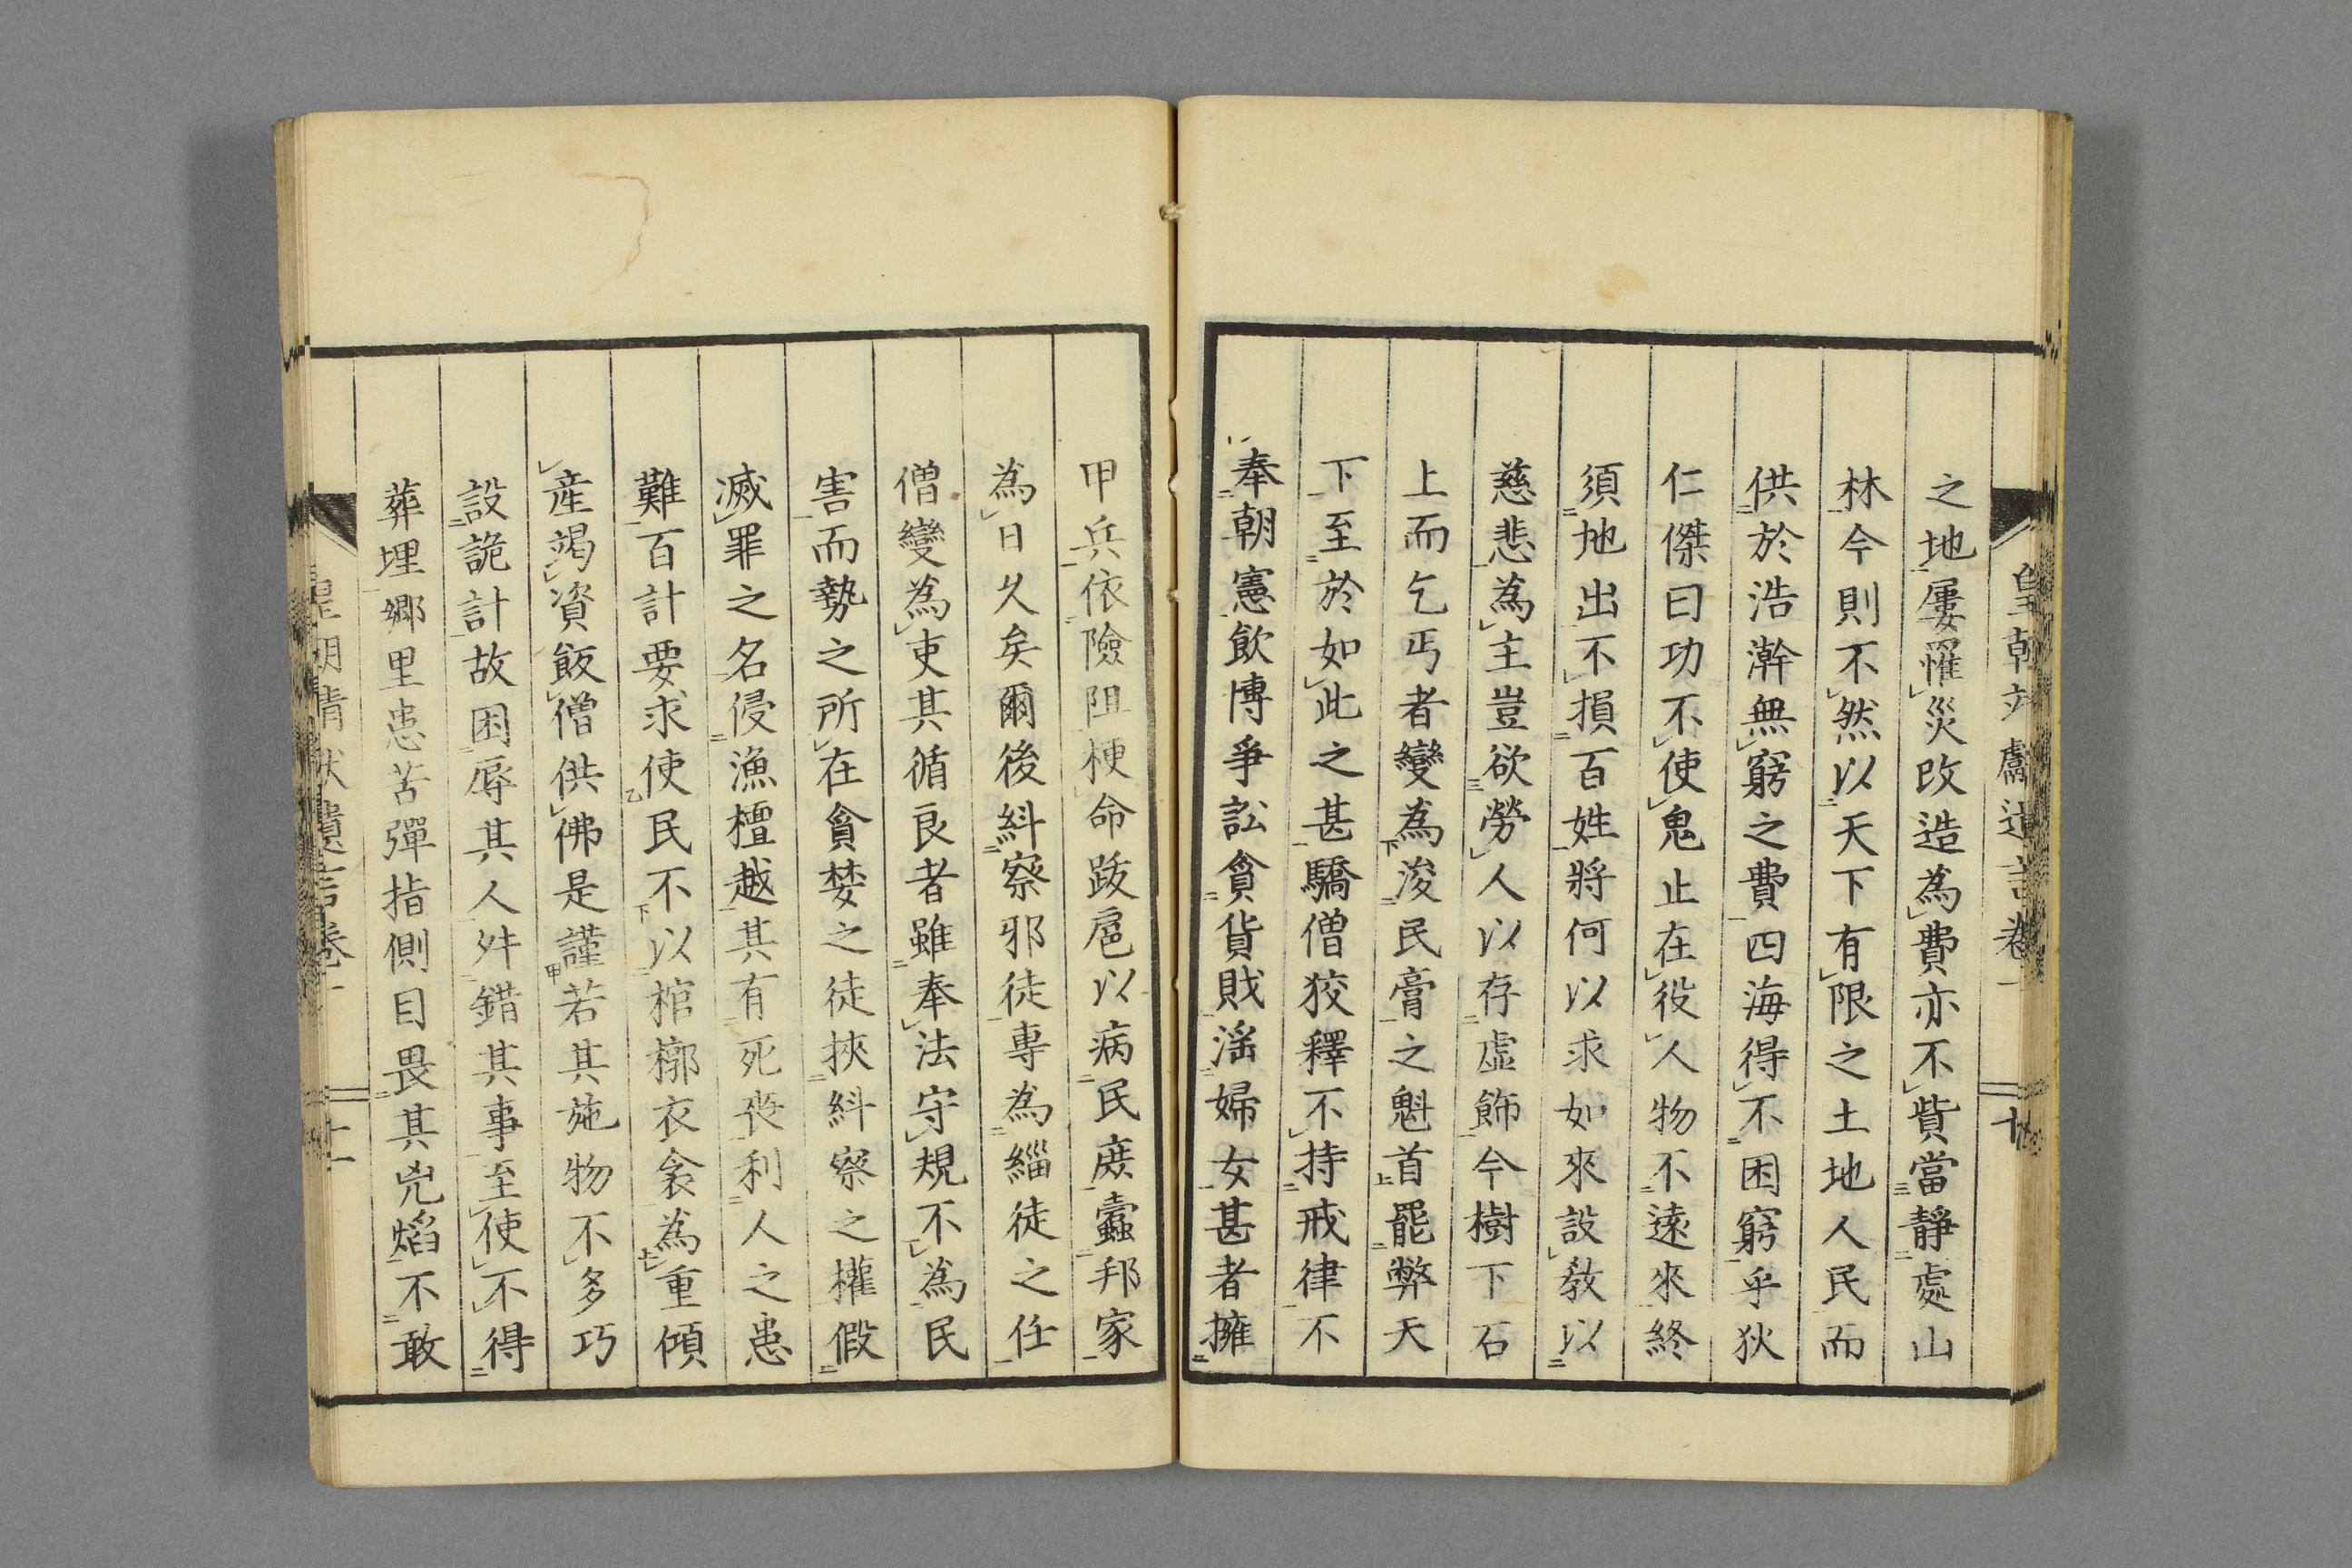 之地屢罹災改造為費亦不貲當靜處山
林今則不然以天下有限之土地人民而
供於浩澣無窮之費四海得不困窮乎狄
仁傑曰功不使鬼止在役人物不遠來終
須地出不損百姓將何以求如來設教以
慈悲為主豈欲勞人以存虛飾今樹下石
上而乞丐者變為浚民膏之魁首罷弊天
下至於如此之甚驕僧狡釋不持戒律不
奉朝憲飲博爭訟貪貨賊淫婦女甚者擁
甲兵依險阻梗命跋扈以病民庶蠹邦家
為日久矣爾後糾察邪徒專為緇徒之任
僧變為吏其循良者雖奉法守規不為民
害而勢之所在貪婪之徒挾糾察之權假
滅罪之名侵漁檀越其有死喪利人之患
難百計要求使民不以棺槨衣衾為重傾
產竭資飯僧供佛是謹若其施物不多巧
設詭計故困辱其人舛錯其事至使不得
葬埋鄉里患苦彈指側目畏其兇焰不敢
十一